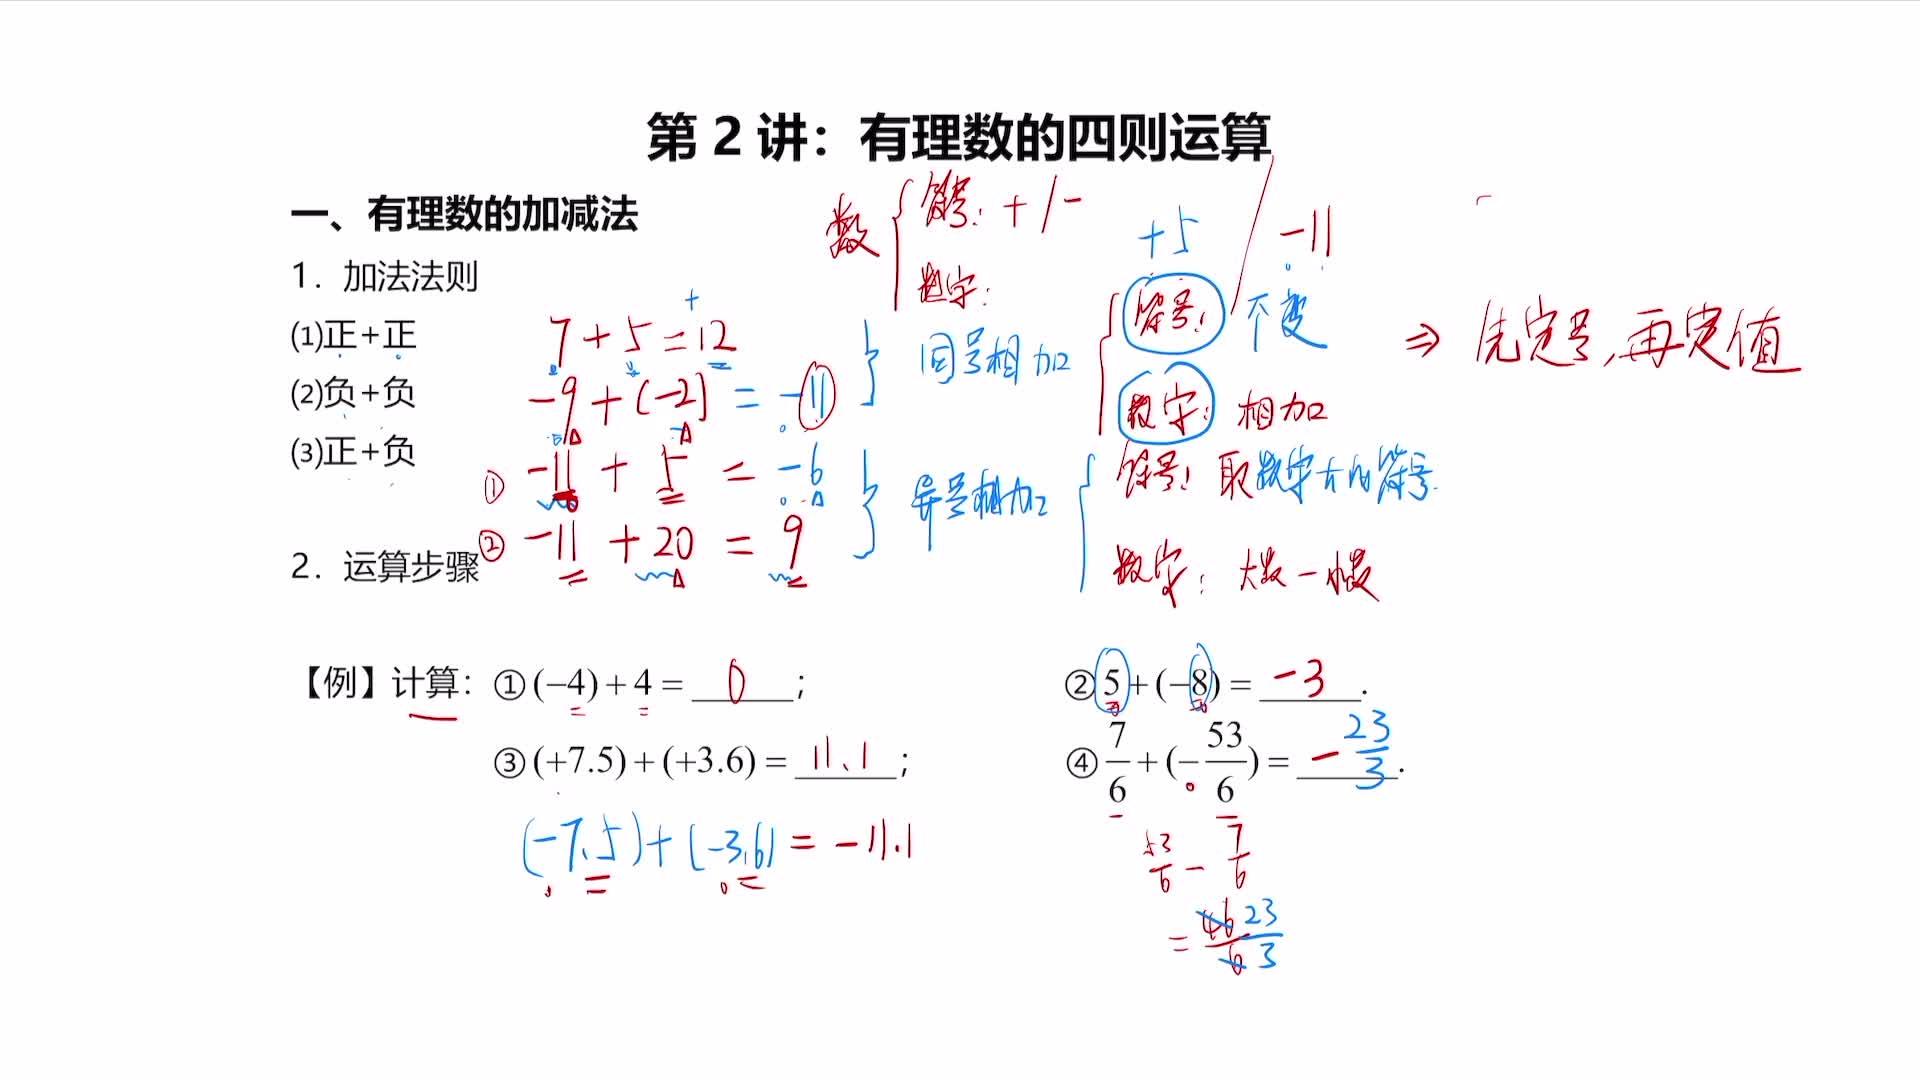 第 2 讲：有理数的四则运算
一、有理数的加减法
数 { 符号: + / −
数字:
+5 / −11
1. 加法法则
(1)正+正
7 + 5 = 12
+
(2)负+负
−9 + (−2) = −11
} 同号相加 { 符号: 不变
数字: 相加
⇒ 先定号,再定值
(3)正+负
① −11 + 5 = −6
② −11 + 20 = 9
} 异号相加 { 符号: 取数字大的符号.
数字: 大数 − 小数
2. 运算步骤
【例】计算：①(−4)+4= 0 ;
②5+(−8)= −3 .
③(+7.5)+(+3.6)= 11.1 ;
④7/6+(−53/6)= −23/3 .
(−7.5)+(−3.6) = −11.1
53/6 − 7/6
= 46/6 23/3